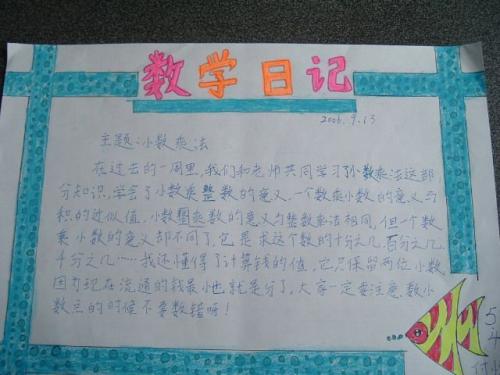 数学日记
2006.9.13
主题:小数乘法
在过去的一周里,我们和老师共同学习了小数乘法这部
分知识,学会了小数乘整数的意义,一个数乘小数的意义与
积的近似值,小数乘整数的意义与整数乘法相同,但一个数
乘小数的意义却不同了,它是求这个数的十分之几,百分之几,
千分之几……我还懂得了计算钱的值,它只保留两位小数,
因为现在流通的钱最小也就是分了。大家一定要注意,数小
数点的时候不要数错呀!
5